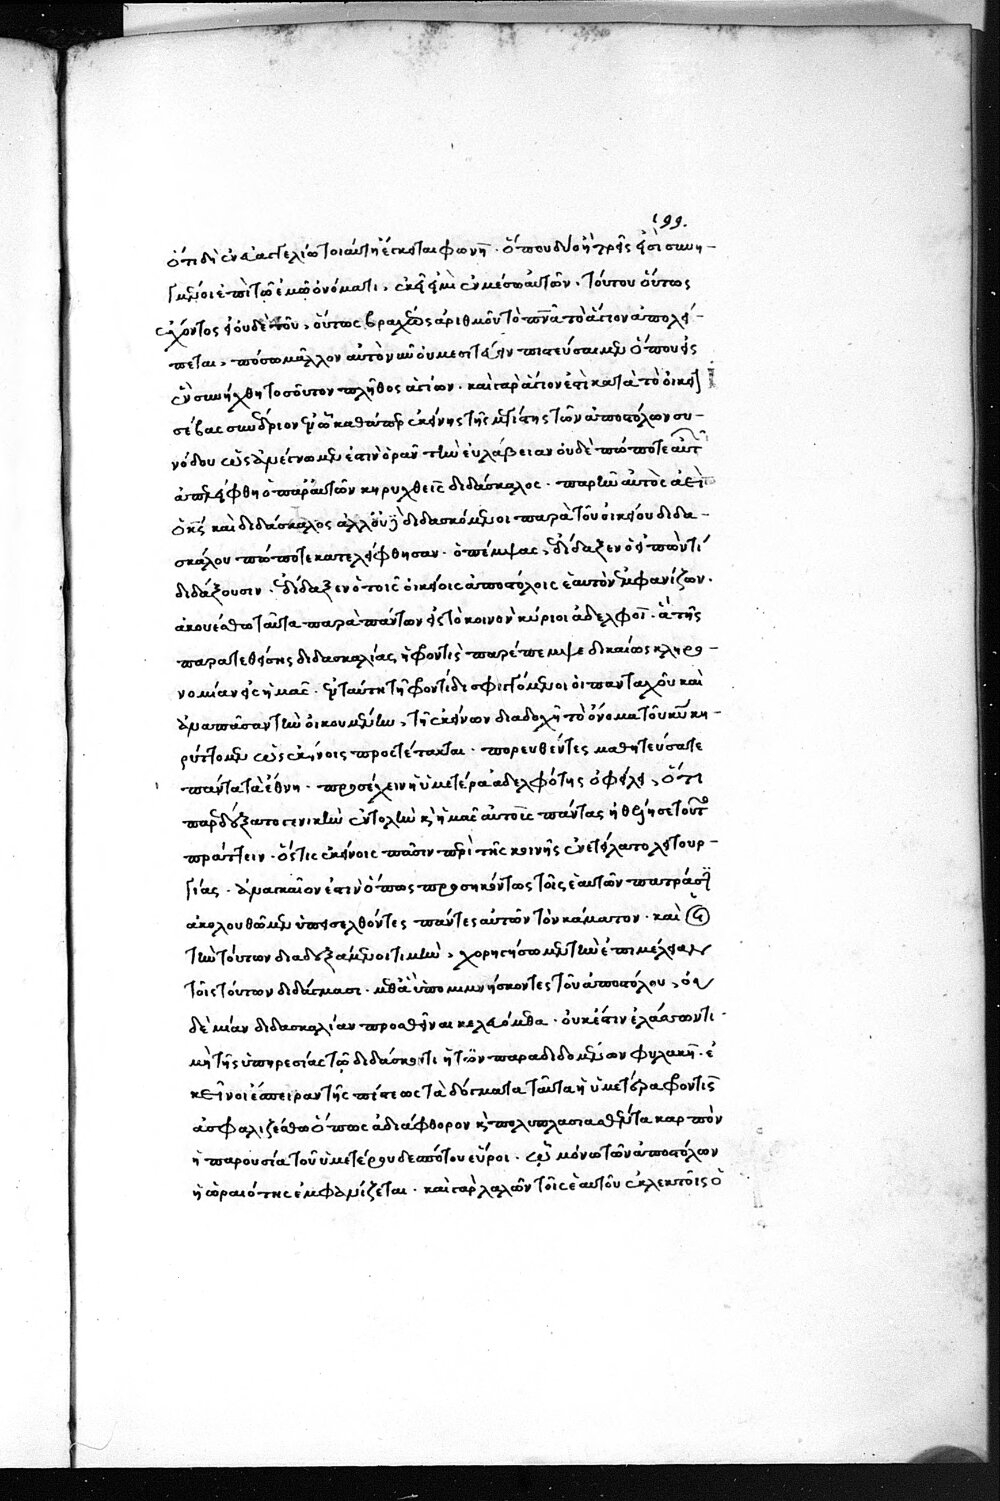 199.
ὅτι δὴ ἐν εὐαγγελίῳ τοιαύτη ἔγκειται φωνή. ὅπου δύο ἢ τρεῖς εἰσὶ συνη-
γμένοι ἐπὶ τῷ ἐμῷ ὀνόματι, ἐκεῖ εἰμὶ ἐν μέσῳ αὐτῶν. τούτου οὕτως
ἔχοντος εἰ οὐδὲ τοῦ οὕτως βραχέως ἀριθμοῦ τὸ πνα τὸ ἅγιον ἀπολεί-
πεται, πόσῳ μᾶλλον αὐτὸ νῦν οὐ μεσιτεύειν πιστεύσωμεν ὅπου εἰς
ἓν συνήχθη τοσοῦτον πλῆθος ἁγίων. καὶ γὰρ ἅγιον ἐστὶ κατὰ τὸ οἰκεῖ
σέβας συνέδριον ἐν ᾧ καθάπερ ἐκείνης τῆς μεγίστης τῶν ἀποστόλων συ-
νόδου ὡς ἀνέγνωμεν ἐστὶν ὁρᾶν τὴν εὐλάβειαν οὐδὲ πώποτε αὐτ
ἀπελείφθη ὁ παρ' αὐτῶν κηρυχθεὶς διδάσκαλος. παρῆν αὐτὸς ἀεὶ
ὁ κς καὶ διδάσκαλος ἀλλ' οὐχὶ διδασκόμενοι παρὰ τοῦ οἰκείου διδα-
σκάλου πώποτε κατελείφθησαν. ὁ πέμψας, ἐδίδαξεν ὁ εἰπὼν τί
διδάξουσιν. ἐδίδαξεν ὁ τοῖς οἰκείοις ἀποστόλοις ἑαυτὸν ἐμφανίζων.
ἀκουέσθω ταῦτα παρὰ πάντων εἰς τὸ κοινὸν κύριοι ἀδελφοί. ἃ τῆς
παρατεθείσης διδασκαλίας ἡ φροντὶς παρέπεμψε δικαίως κληρο-
νομίαν εἰς ἡμᾶς. ἐν ταύτῃ τῇ φροντίδι σφιγγόμενοι οἱ πανταχοῦ καὶ
ἀνὰ πᾶσαν τὴν οἰκουμένην, τῇ ἐκείνων διαδοχῇ τὸ ὄνομα τοῦ κυ κη-
ρύττομεν ὡς ἐκείνοις προστέτακται. πορευθέντες μαθητεύσατε
πάντα τὰ ἔθνη. προσέχειν ἡ ὑμετέρα ἀδελφότης ὀφείλει, ὅτι
παρεδέξατο γενικὴν ἐντολὴν καὶ ἡμᾶς αὐτοῖς πάντας ἠθέλησε τοῦτο
πράττειν. ὅστις ἐκείνοις πᾶσιν περὶ τῆς κοινῆς ἐνετείλατο λειτουρ-
γίας. ἀναγκαῖον ἐστὶν ὅπως προσηκόντως τοῖς ἑαυτῶν πατράσι
ἀκολουθῶμεν ὑπεισελθόντες πάντες αὐτῶν τὸν κάματον. καὶ
τὴν τούτων διαδεξάμενοι τιμὴν, χορηγήσωμεν τὴν ἐπιμέλειαν
τοῖς τούτων διδάγμασι. μεθ' ἃ ὑπομιμνήσκοντες τοῦ ἀποστόλου,
δὲ μίαν διδασκαλίαν προσθεῖναι κελευόμεθα. οὐκ ἔστιν ἐλάττων τι-
μὴ τῆς ὑπηρεσίας τῷ διδάσκοντι ἡ τῶν παραδιδομένων φυλακή. ἐ
κεῖνοι ἔσπειραν τῆς πίστεως τὰ δόγματα ταῦτα ἡ ὑμετέρα φροντὶς
ἀσφαλιζέσθω ὅπως ἀδιάφθορον καὶ πολυπλασιασθέντα καρπὸν
ἡ παρουσία τοῦ ὑμετέρου δεσπότου εὕροι. ᾧ μόνῳ τῶν ἀποστόλων
ἡ ὡραιότης ἐμφανίζεται. καὶ γὰρ λαλῶν τοῖς ἑαυτοῦ ἐκλεκτοῖς ὁ